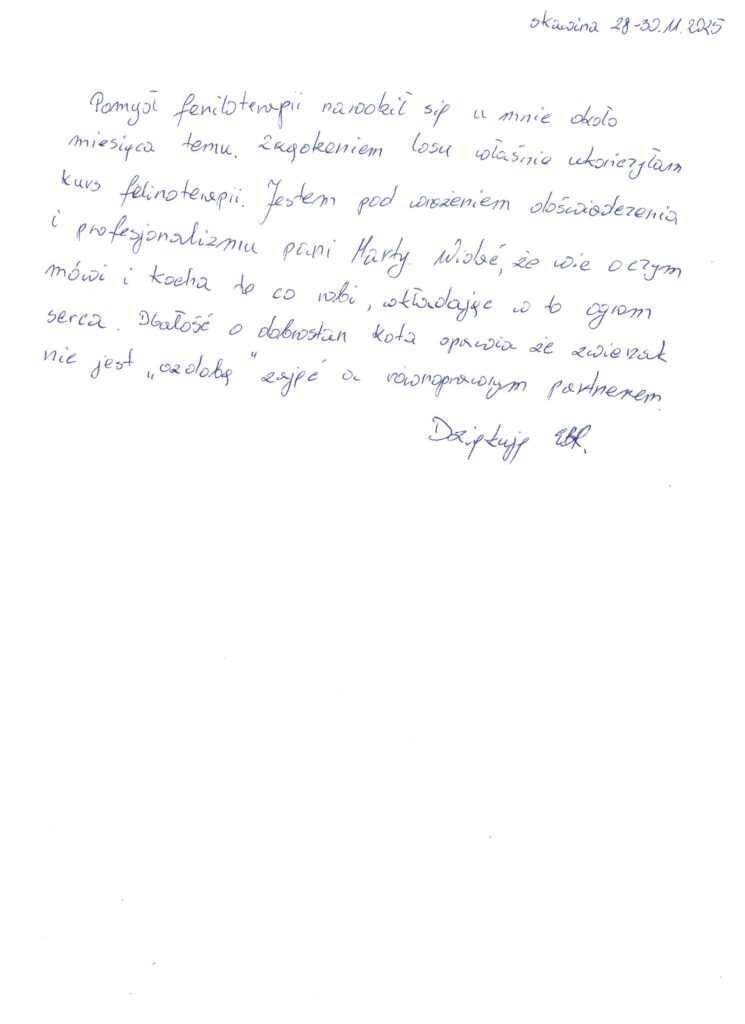 Skawina 28-30.11.2025
Pomysł feniloterapii narodził się u mnie około
miesiąca temu. Zrządzeniem losu właśnie ukończyłam
kurs felinoterapii. Jestem pod wrażeniem doświadczenia
i profesjonalizmu pani Marty. Widać, że wie o czym
mówi i kocha to co robi, wkładając w to ogrom
serca. Dbałość o dobrostan kota sprawia że zwierzak
nie jest „ozdobą" zajęć a równoprawnym partnerem.
Dziękuję